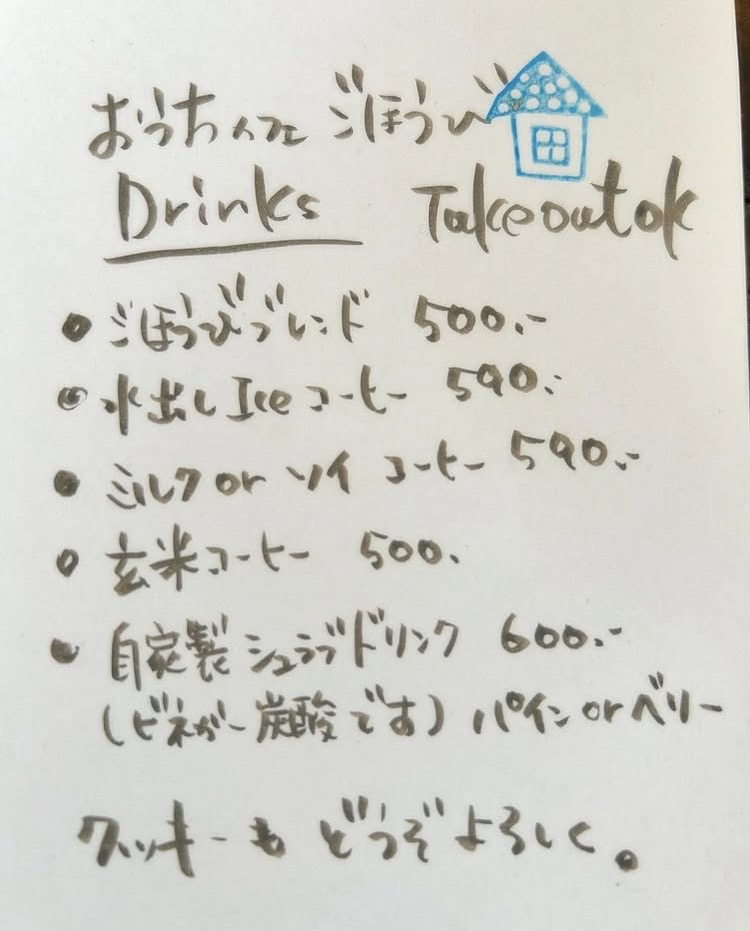 おうちカフェ ごほうび
Drinks Takeout ok
• ごほうびブレンド 500.-
• 水出し Ice コーヒー 590.-
• ミルク or ソイ コーヒー 590.-
• 玄米コーヒー 500.
• 自家製シュラブドリンク 600.-
(ビネガー炭酸です) パイン or ベリー
クッキーも どうぞよろしく。